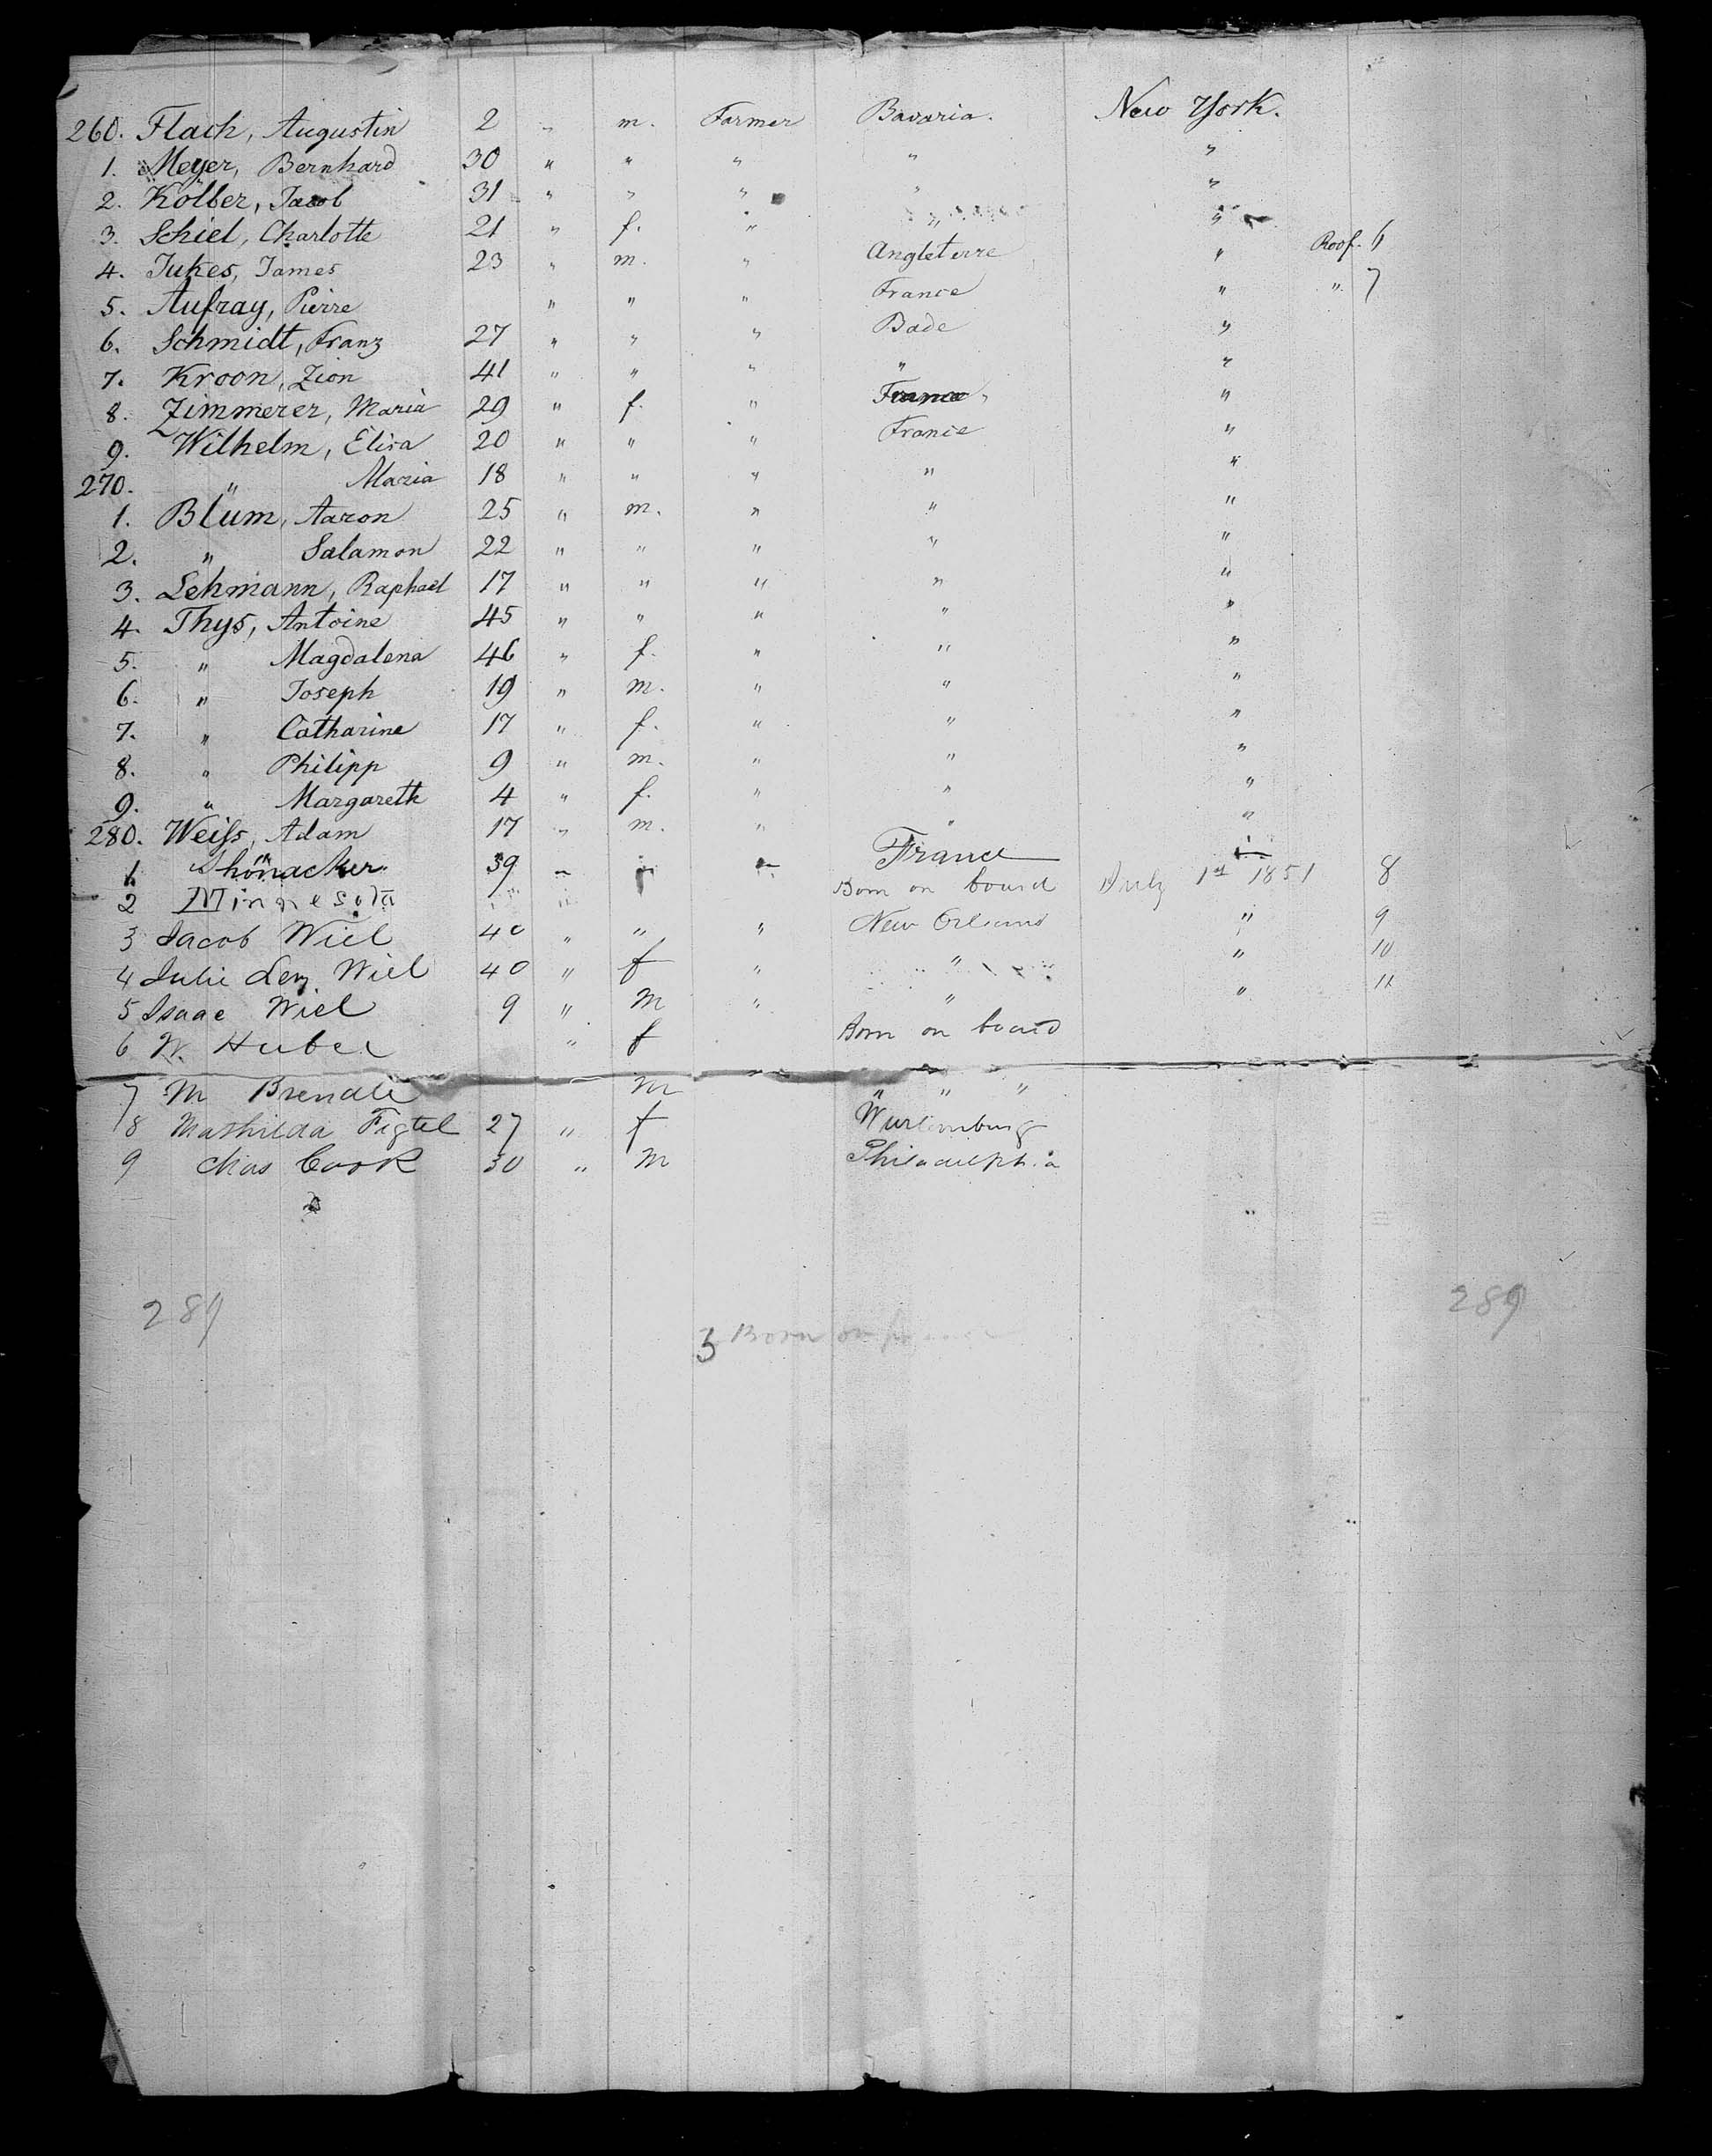 260. Flach, Augustin 2 " m. Farmer Bavaria. New York.
1. Meyer, Bernhard 30 " " " " "
2. Kölber, Jacob 31 " " " " "
3. Schiel, Charlotte 21 " f. " " "
4. Jukes, James 23 " m. " Angleterre " Roof. 6
5. Aufray, Pierre " " " France " " 7
6. Schmidt, Franz 27 " " " Bade "
7. Kroon, Zion 41 " " " " "
8. Zimmerer, Maria 29 " f. " France "
9. Wilhelm, Elisa 20 " " " France "
270. " Maria 18 " " " " "
1. Blum, Aaron 25 " m. " " "
2. " Salamon 22 " " " " "
3. Lehmann, Raphael 17 " " " " "
4. Thys, Antoine 45 " " " " "
5. " Magdalena 46 " f. " " "
6. " Joseph 19 " m. " " "
7. " Catharine 17 " f. " " "
8. " Philipp 9 " m. " " "
9. " Margareth 4 " f. " " "
280. Weiss, Adam 17 " m. " " "
1 Shönacker 39 " " " France "
2 Minnesota Born on board July 1st 1851 8
3 Jacob Wiel 40 " " " New Orleans " 9
4 Julie Wiel 40 " f " " " 10
5 Isaac Wiel 9 " M " " " 11
6 W. Huber " f Born on board
7 M Brendle " M " " "
8 Mathilda Figtel 27 " f Wurtemburg
9 Chas Cook 30 " M Philadelphia
289 289
3 Born on